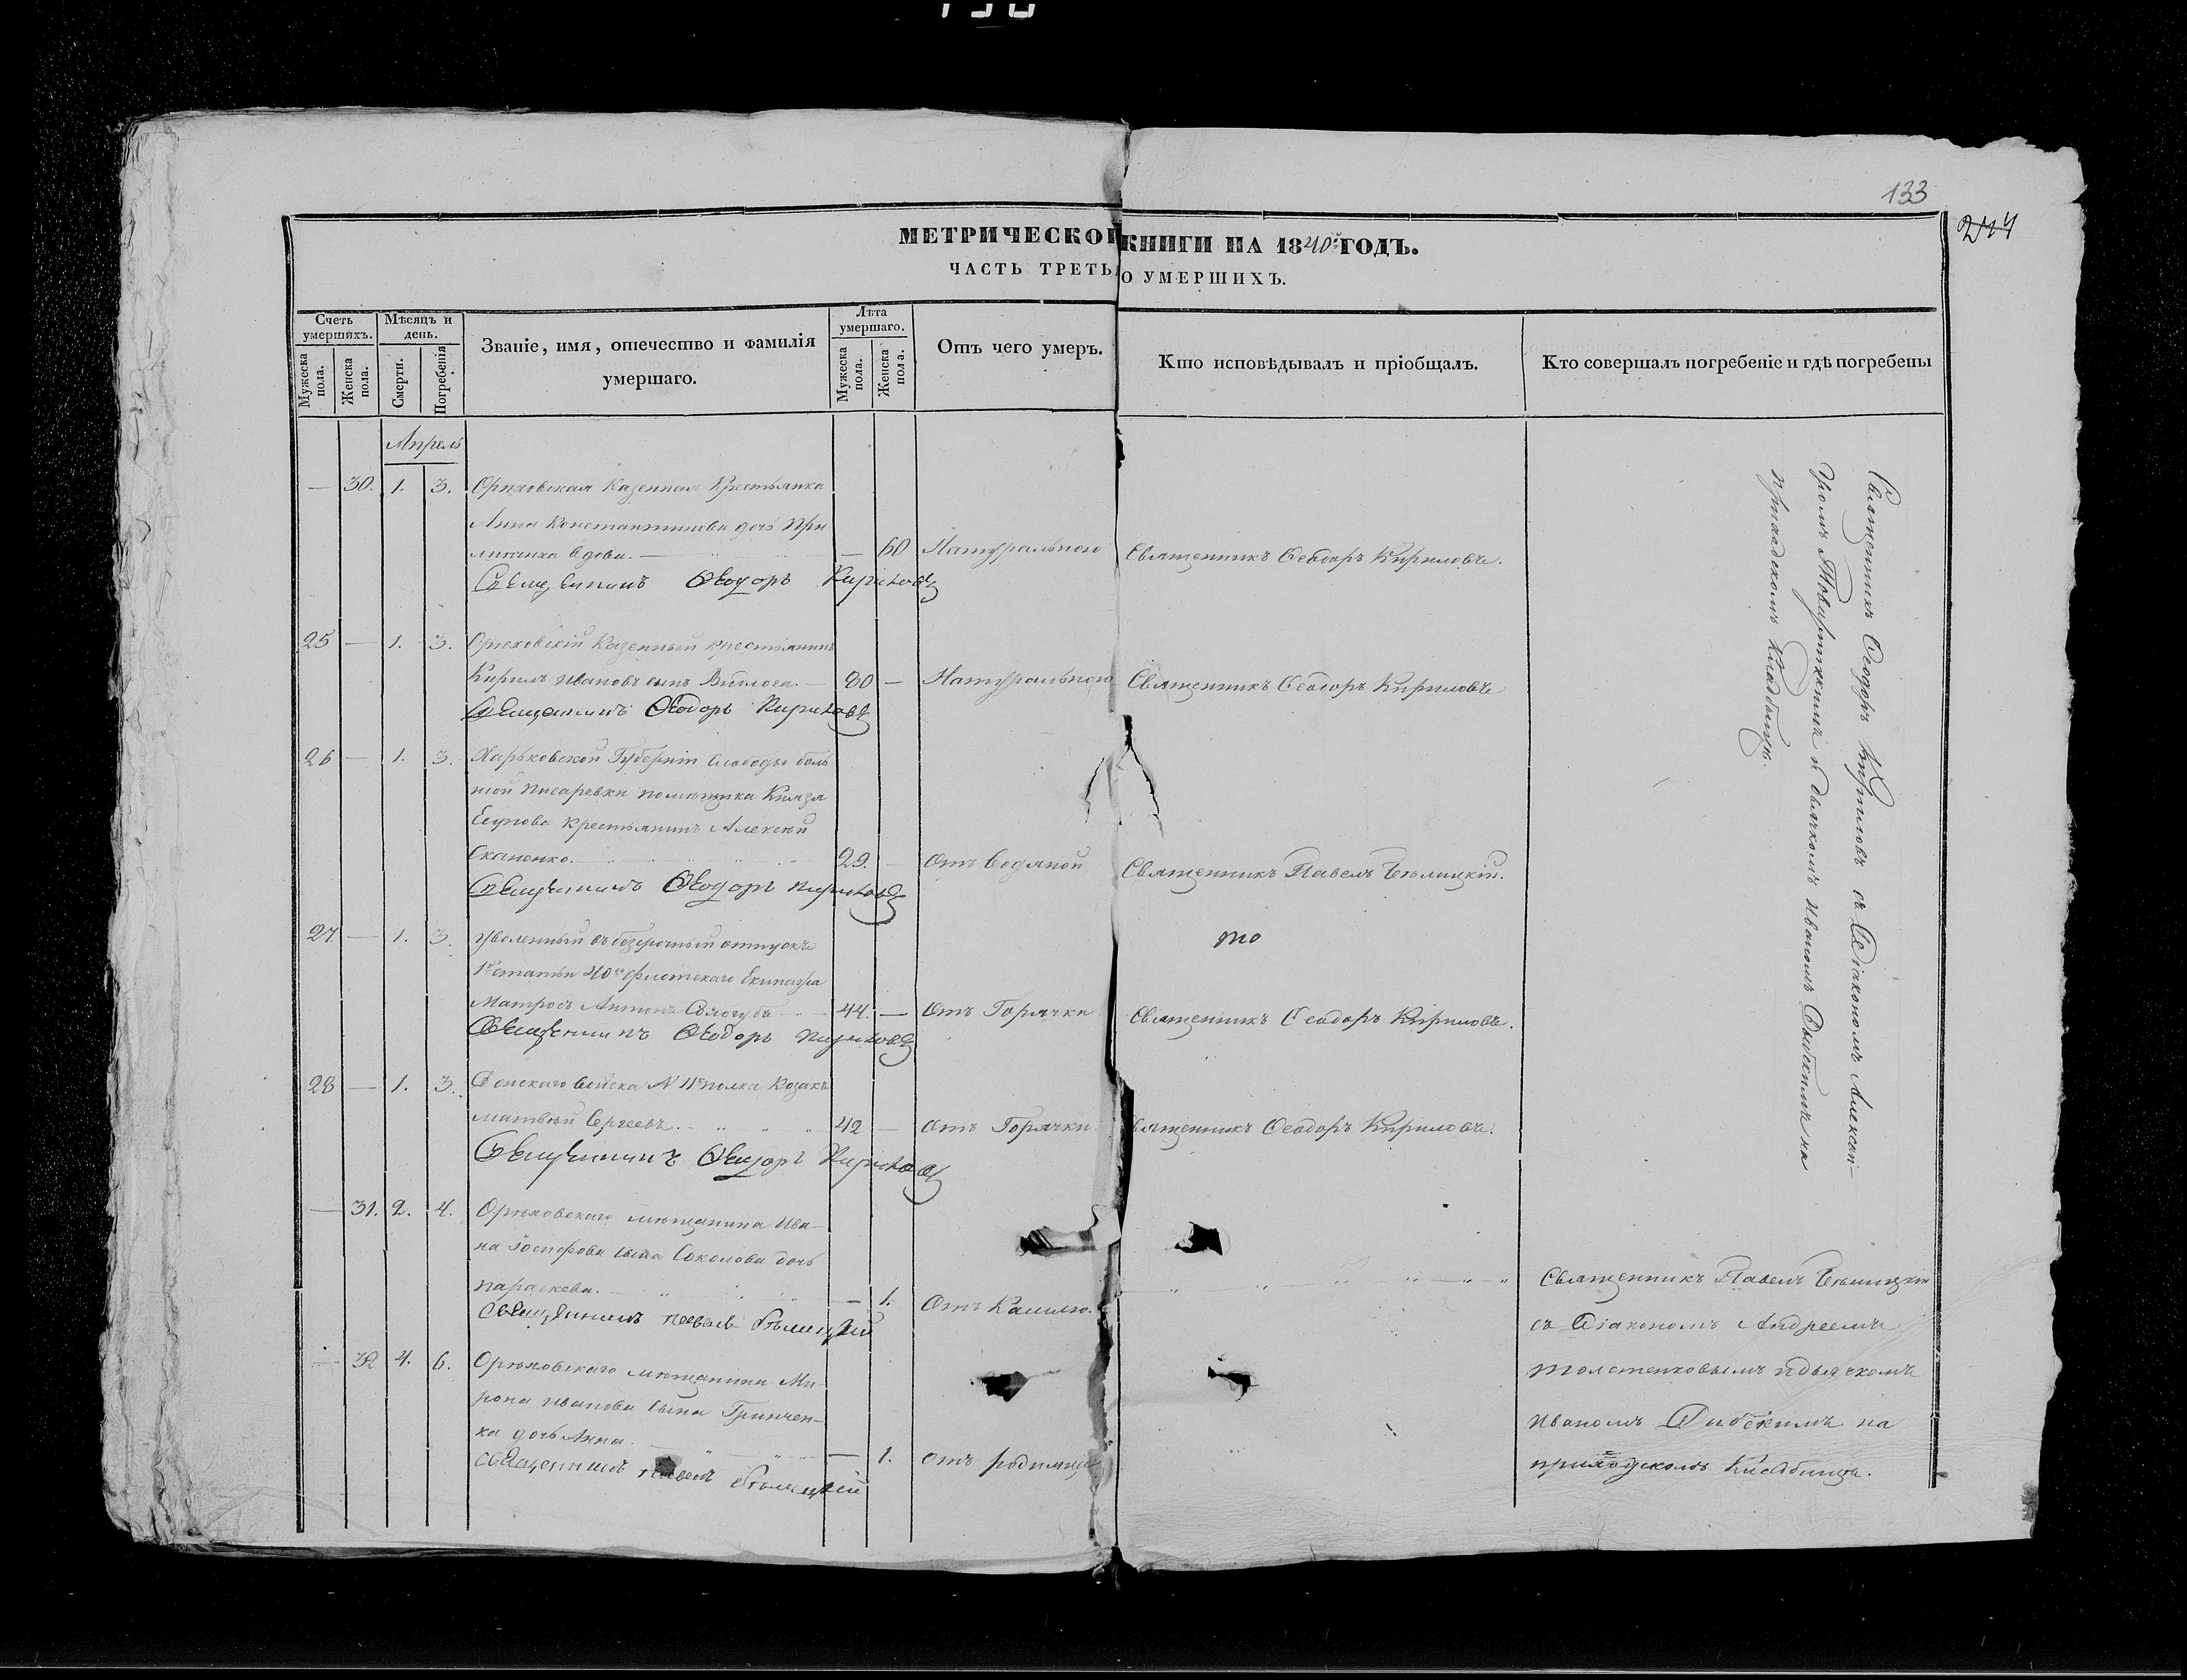 133
244
МЕТРИЧЕСКОЙ КНИГИ НА 1840й ГОДЪ.
ЧАСТЬ ТРЕТЬ О УМЕРШИХЪ.
Счетъ умершихъ.
Мужеска пола.
Женска пола.
Мѣсяцъ и день.
Смерти.
Погребенія
Званіе, имя, отечество и фамилія умершаго.
Лѣта умершаго.
Мужеска пола.
Женска пола.
Отъ чего умеръ.
Кто исповѣдывалъ и пріобщалъ.
Кто совершалъ погребеніе и гдѣ погребены
Апрель
— 30. 1. 3. Орѣховская Казенная Крестьянка
Анна Константинова дочь
вдова. — 60 Натуральною Священникъ Феодоръ Кириловъ.
Священникъ Феодоръ Кириловъ
25 — 1. 3. Орѣховскій Казенный крестьянинъ
Кирилъ Ивановъ сынъ — 80 — Натуральною Священникъ Феодоръ Кириловъ
Священникъ Феодоръ Кириловъ
26 — 1. 3. Харьковской Губерніи Слободы боль
шой Писаревки помѣщика Князя
Есупова крестьянинъ Алексѣй
29. — Отъ Водяной Священникъ Павелъ Бѣлицкій.
Священникъ Феодоръ Кириловъ
27 — 1. 3. Уволенный въ безсрочный отпускъ
1й статьи 40го флотскаго Екипажа
Матросъ Антонъ Сологубъ 44. — Отъ Горячки Священникъ Феодоръ Кириловъ.
Священникъ Феодоръ Кириловъ
28 — 1. 3. Донскаго Войска N 11го полка Козакъ
Матвѣй Сергеевъ. 42 — Отъ Горячки Священникъ Феодоръ Кириловъ.
Священникъ Феодоръ Кириловъ
— 31. 2. 4. Орѣховскаго мѣщанина Ива
на сына Соколова дочь
Параскева. — 1. Отъ Кашлю.
Священникъ Павелъ Бѣлицкій
— 32 4. 6. Орѣховскаго мѣщанина Ми
рона Иванова сына Гринчен
ка дочь Анна. — 1. отъ родимца
Священникъ Павелъ Бѣлицкій
Священникъ Феодоръ Кириловъ съ Діакономъ Алексан
дромъ и дьячкомъ Иваномъ на
приходскомъ Кладбищѣ.
Священникъ Павелъ Бѣлицкій
съ Діакономъ Андреемъ
Толстенковымъ и дьячкомъ
Иваномъ на
приходскомъ Кладбищѣ.